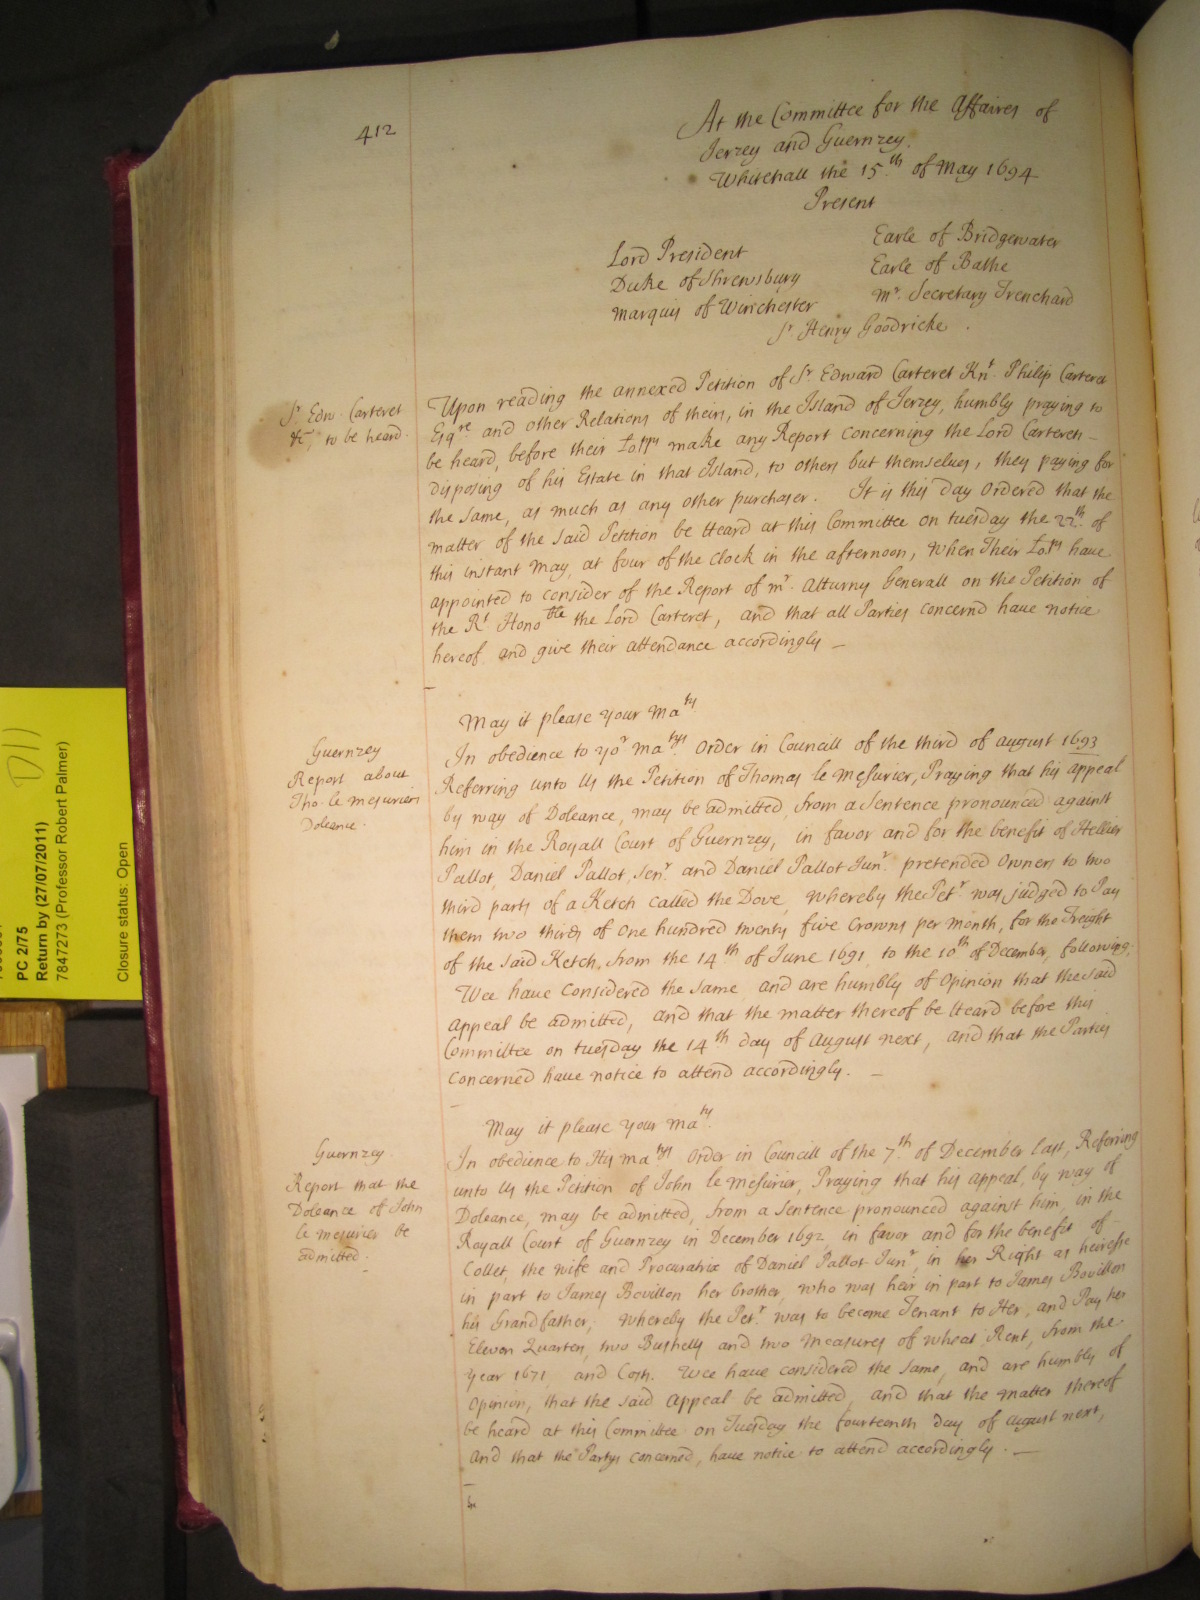 412
At the Committee for the Affaires of
Jerzey and Guernzey.
Whitehall the 15th of May 1694
Present
Lord President
Duke of Shrewsbury
Marquis of Winchester
Earle of Bridgewater
Earle of Bathe
Mr. Secretary Trenchard
Sr. Henry Goodricke.
Sr. Edw. Carteret
&c, to be heard.
Upon reading the annexed Petition of Sr. Edward Carteret Knt. Philip Carteret
Esqre and other Relations of theirs, in the Island of Jerzey, humbly praying to
be heard, before their Lopps make any Report concerning the Lord Carterets
disposing of his Estate in that Island, to others but themselves, they paying for
the same, as much as any other purchaser. It is this day Ordered that the
matter of the said Petition be Heard at this Committee on tuesday the 22th. of
this instant May, at four of the Clock in the afternoon, when Their Lopps have
appointed to consider of the Report of Mr. Atturny Generall on the Petition of
the Rt. Honoble the Lord Carteret, and that all Parties concernd have notice
hereof and give their attendance accordingly —
May it please your Maty.
Guernzey
Report about
Tho. le mesuriers
Doleance.
In obedience to yor Matys. Order in Councill of the third of August 1693
Referring unto Us the Petition of Thomas le Mesurier, Praying that his Appeal
by way of Doleance, may be admitted, from a Sentence pronounced against
him in the Royall Court of Guernzey, in favor and for the benefit of Hellier
Pallot, Daniel Pallot, Senr. and Daniel Pallot Junr. pretended Owners to two
third parts of a Ketch called the Dove, whereby the Petr. was judged to Pay
them two thirds of One hundred twenty five Crowns per month, for the Freight
of the said Ketch, from the 14th of June 1691, to the 10th of December, following.
Wee have Considered the same, and are humbly of Opinion that the said
Appeal be admitted, and that the matter thereof be Heard before this
Committee on tuesday the 14th day of August next, and that the Parties
concerned have notice to attend accordingly. —
May it please Your Maty.
Guernzey
Report that the
Doleance of John
le mesurier be
admitted.
In obedience to His Matys Order in Councill of the 7th. of December last, Referring
unto Us the Petition of John le Mesurier, Praying that his Appeal, by way of
Doleance, may be admitted, from a Sentence pronounced against him, in the
Royall Court of Guernzey in December 1692, in favor and for the benefit of
Collet, the wife and Procuratrix of Daniel Pallot Junr, in her Right as heiresse
in part to James Bovillon her brother, who was heir in part to James Bovillon
his Grandfather; whereby the Petr. was to become Tenant to Her, and Pay her
Eleven Quarters, two Bushells and two Measures of wheat, Rent, from the
Year 1671, and Costs. Wee have considered the same, and are humbly of
Opinion, that the said Appeal be admitted, and that the matter thereof
be heard at this Committee on Tuesday the fourteenth day of August next,
and that the Partys concerned, have notice to attend accordingly. —
PC 2/75
Return by (27/07/2011)
7847273 (Professor Robert Palmer)
Closure status: Open
D11